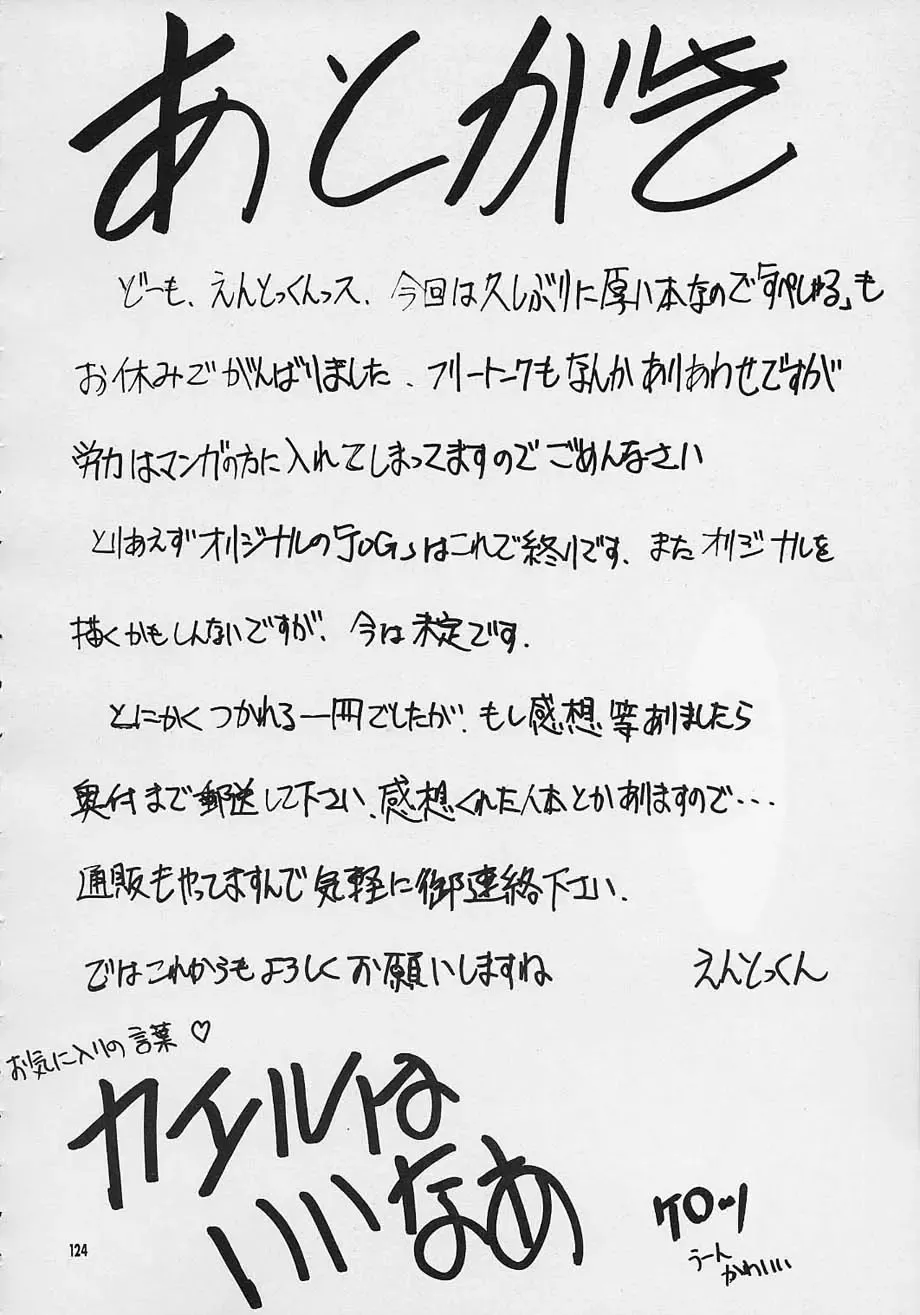 あとがき
どーも、えんとっくんっス、今回は久しぶりに厚い本なので「すぺしゃる」も
お休みでがんばりました、フリートークもなんかありあわせですが
労力はマンガの方に入れてしまってますのでごめんなさい
とりあえずオリジナルの「JOG」はこれで終りです、またオリジナルを
描くかもしんないですが、今は未定です.
とにかくつかれる一冊でしたが、もし感想等ありましたら
奥付まで郵送して下さい、感想くれた人本とかありますので・・・
通販もやってますんで気軽に御連絡下さい.
ではこれからもよろしくお願いしますね
えんとっくん
お気に入りの言葉♡
カイルは
いいなあ
ケロッ
うーん
かわいい
124